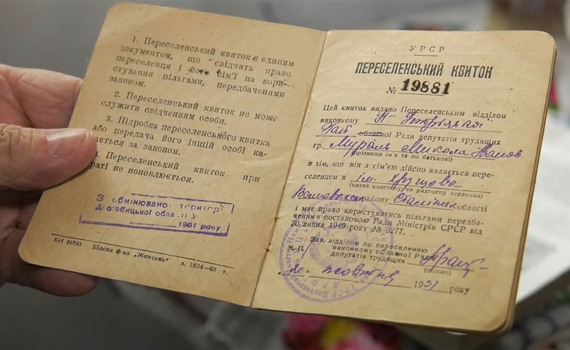 1. Переселенський квиток є єдиним
документом, що свідчить право
переселенця і його сім'ї на кори-
стування пільгами, передбаченими
законом.
2. Переселенський квиток не може
служити посвідченням особи.
3. Підробка переселенського квитка
або передача його іншій особі ка-
рається за законом.
4. Переселенський квиток при
втраті не поновлюється.
З обмінюваної території
Дрогобицької області
1951 року
БИ 16565 Білова ф-ка „Жовтень" з. 1624—50 г.
УРСР
ПЕРЕСЕЛЕНСЬКИЙ КВИТОК
№ 19881
Цей квиток видано Переселенським відділом
виконкому
обласної Ради депутатів трудящих
гр. Микола
(прізвище, ім'я та по батькові)
в тім, що він з сім'єю дійсно являється пере-
селенцем в ім. Хрущова
(назва колгоспу чи радгоспу вселення)
району Сталінської області
і має право користуватись пільгами передба-
ченими постановою Ради Міністрів СРСР від
1949 року №
Зав. відділом по переселенню
виконкому обласної Ради
депутатів трудящих
(підпис)
М. П.
жовтня 1951 року